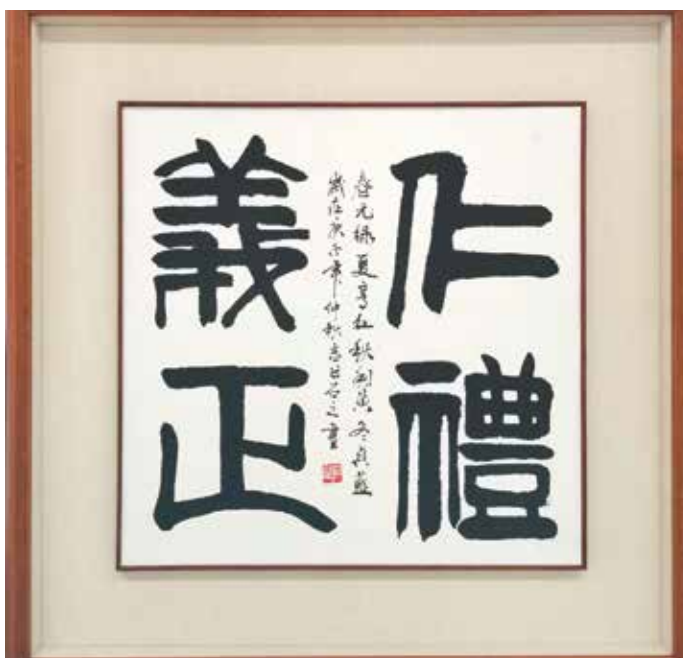 仁禮
春元綠夏亨紅秋利黃冬貞藍
歲在庚子年仲秋
義正